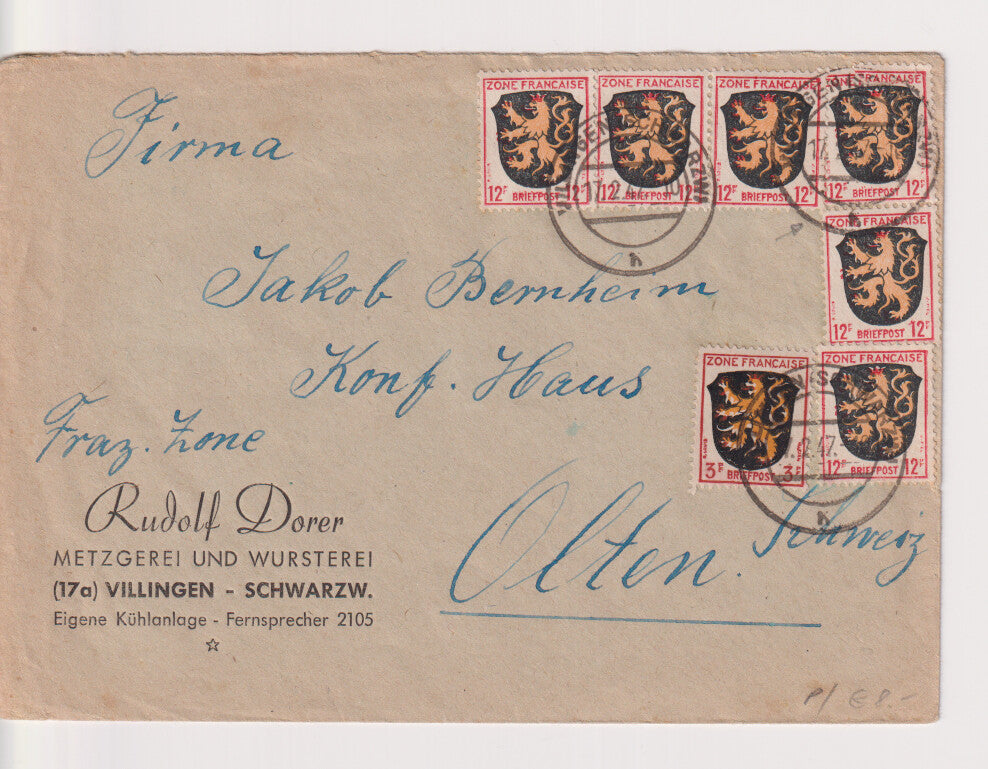 ZONE FRANCAISE ZONE FRANCAISE ZONE FRANCAISE ZONE FRANCAISE
12F BRIEFPOST 12F 12F BRIEFPOST 12F 12F BRIEFPOST 12F 12F BRIEFPOST 12F
17.2.47
h
Firma
Jakob Bernheim
12F BRIEFPOST 12F
Konf. Haus
ZONE FRANCAISE ZONE FRANCAISE
3F BRIEFPOST 3F 12F BRIEFPOST 12F
7.2.47.
h
Fraz. Zone
Rudolf Dorer
METZGEREI UND WURSTEREI
(17a) VILLINGEN - SCHWARZW.
Eigene Kühlanlage - Fernsprecher 2105
Olten.
Schweiz
P/ € 8.-